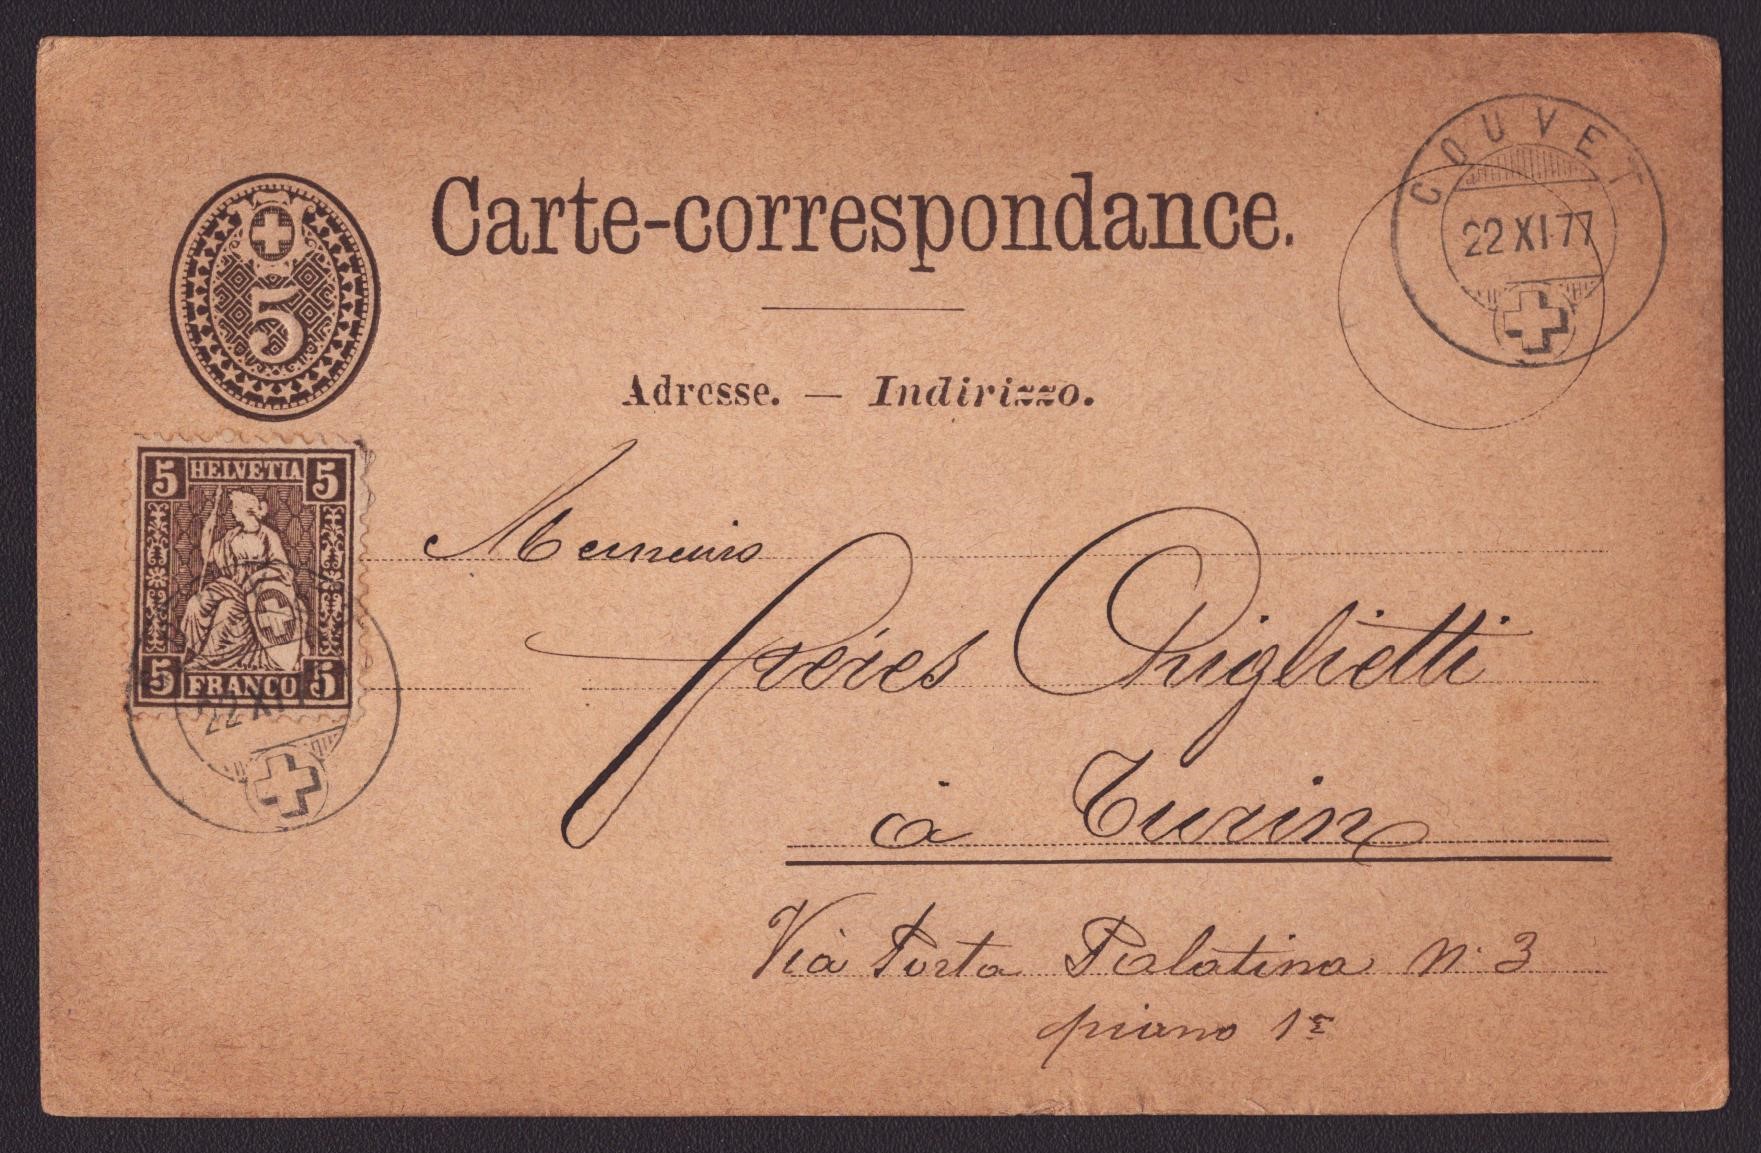 Carte-correspondance.
5
Adresse. — Indirizzo.
COUVET
22 XI·77
5 HELVETIA 5
5 FRANCO 5
22 XI
Messieurs
frères Chiglietti
à Turin
Via Porta Palatina N. 3
piano 1º